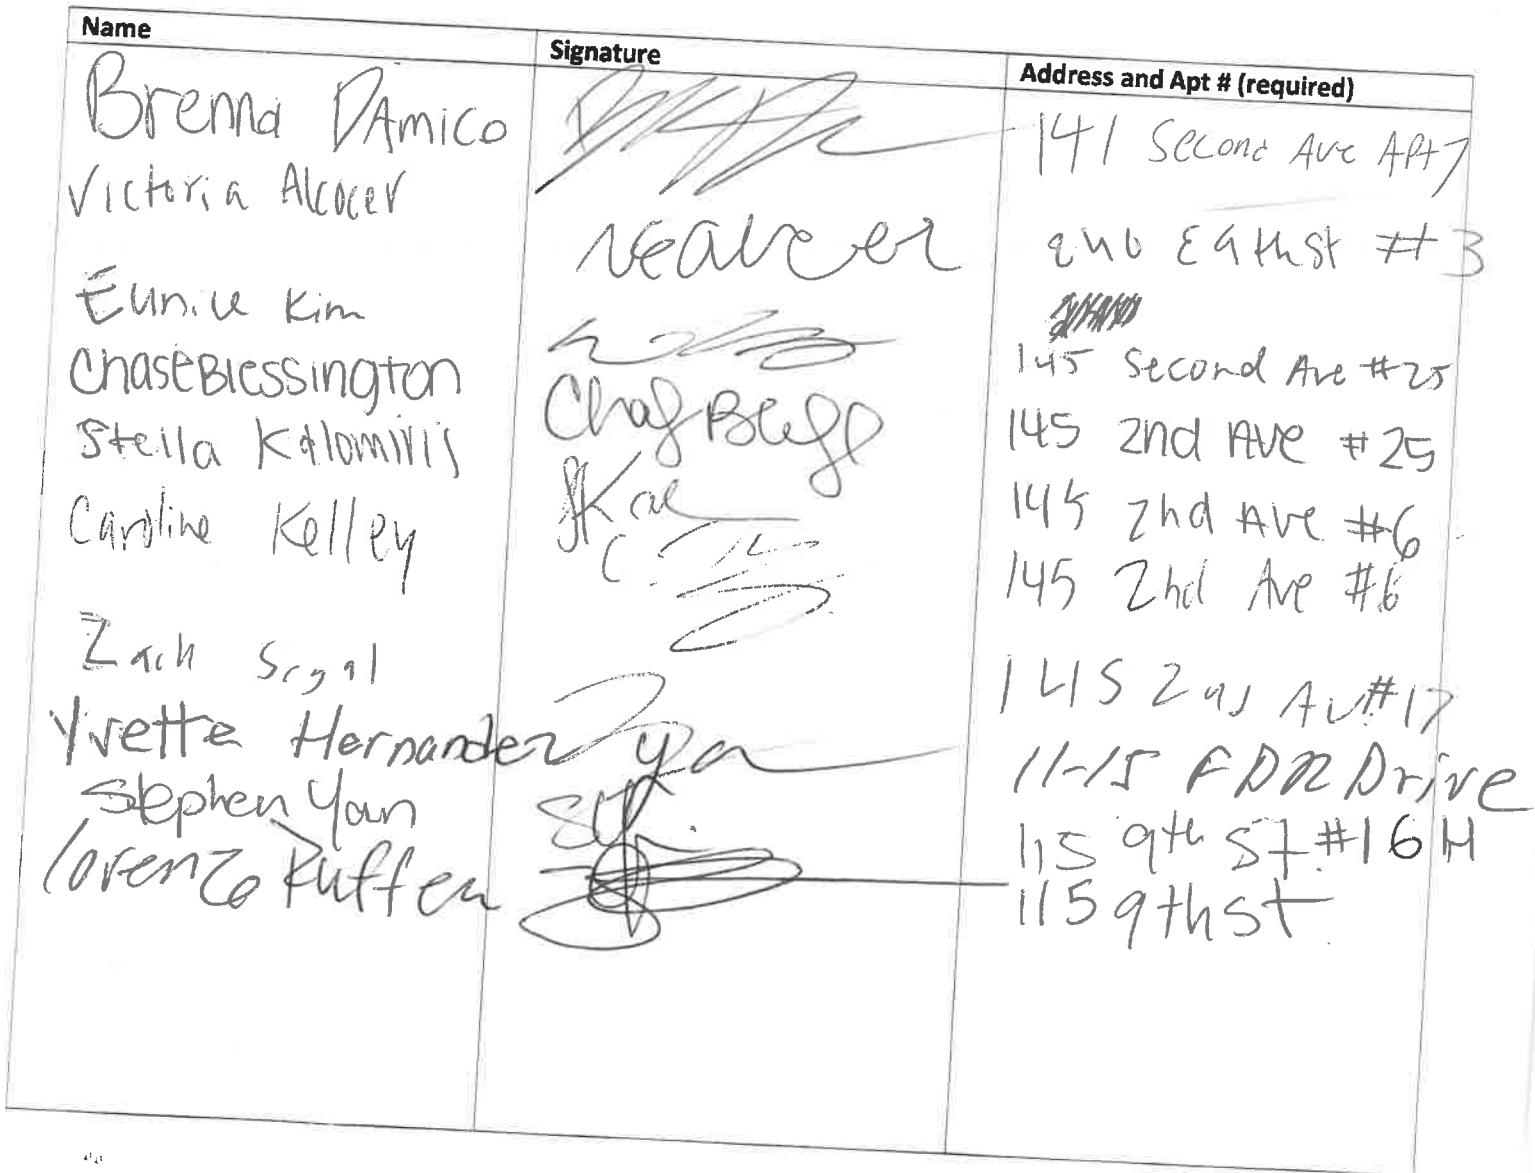 Name Signature Address and Apt # (required)
Brenna DAmico 141 Second Ave APt 7
Victoria Alcocer 240 E 9thst #3
Eunice Kim 145 Second Ave #25
ChaseBlessington 145 2nd AVe #25
Stella Kalomiris 145 2nd AVe #6
Caroline Kelley 145 2nd Ave #6
Zach Segal 145 2nd Av #17
Yvette Hernandez 11-15 FDR Drive
Stephen Yan 115 9th St #16H
lorenzo Ruffen 115 9th st